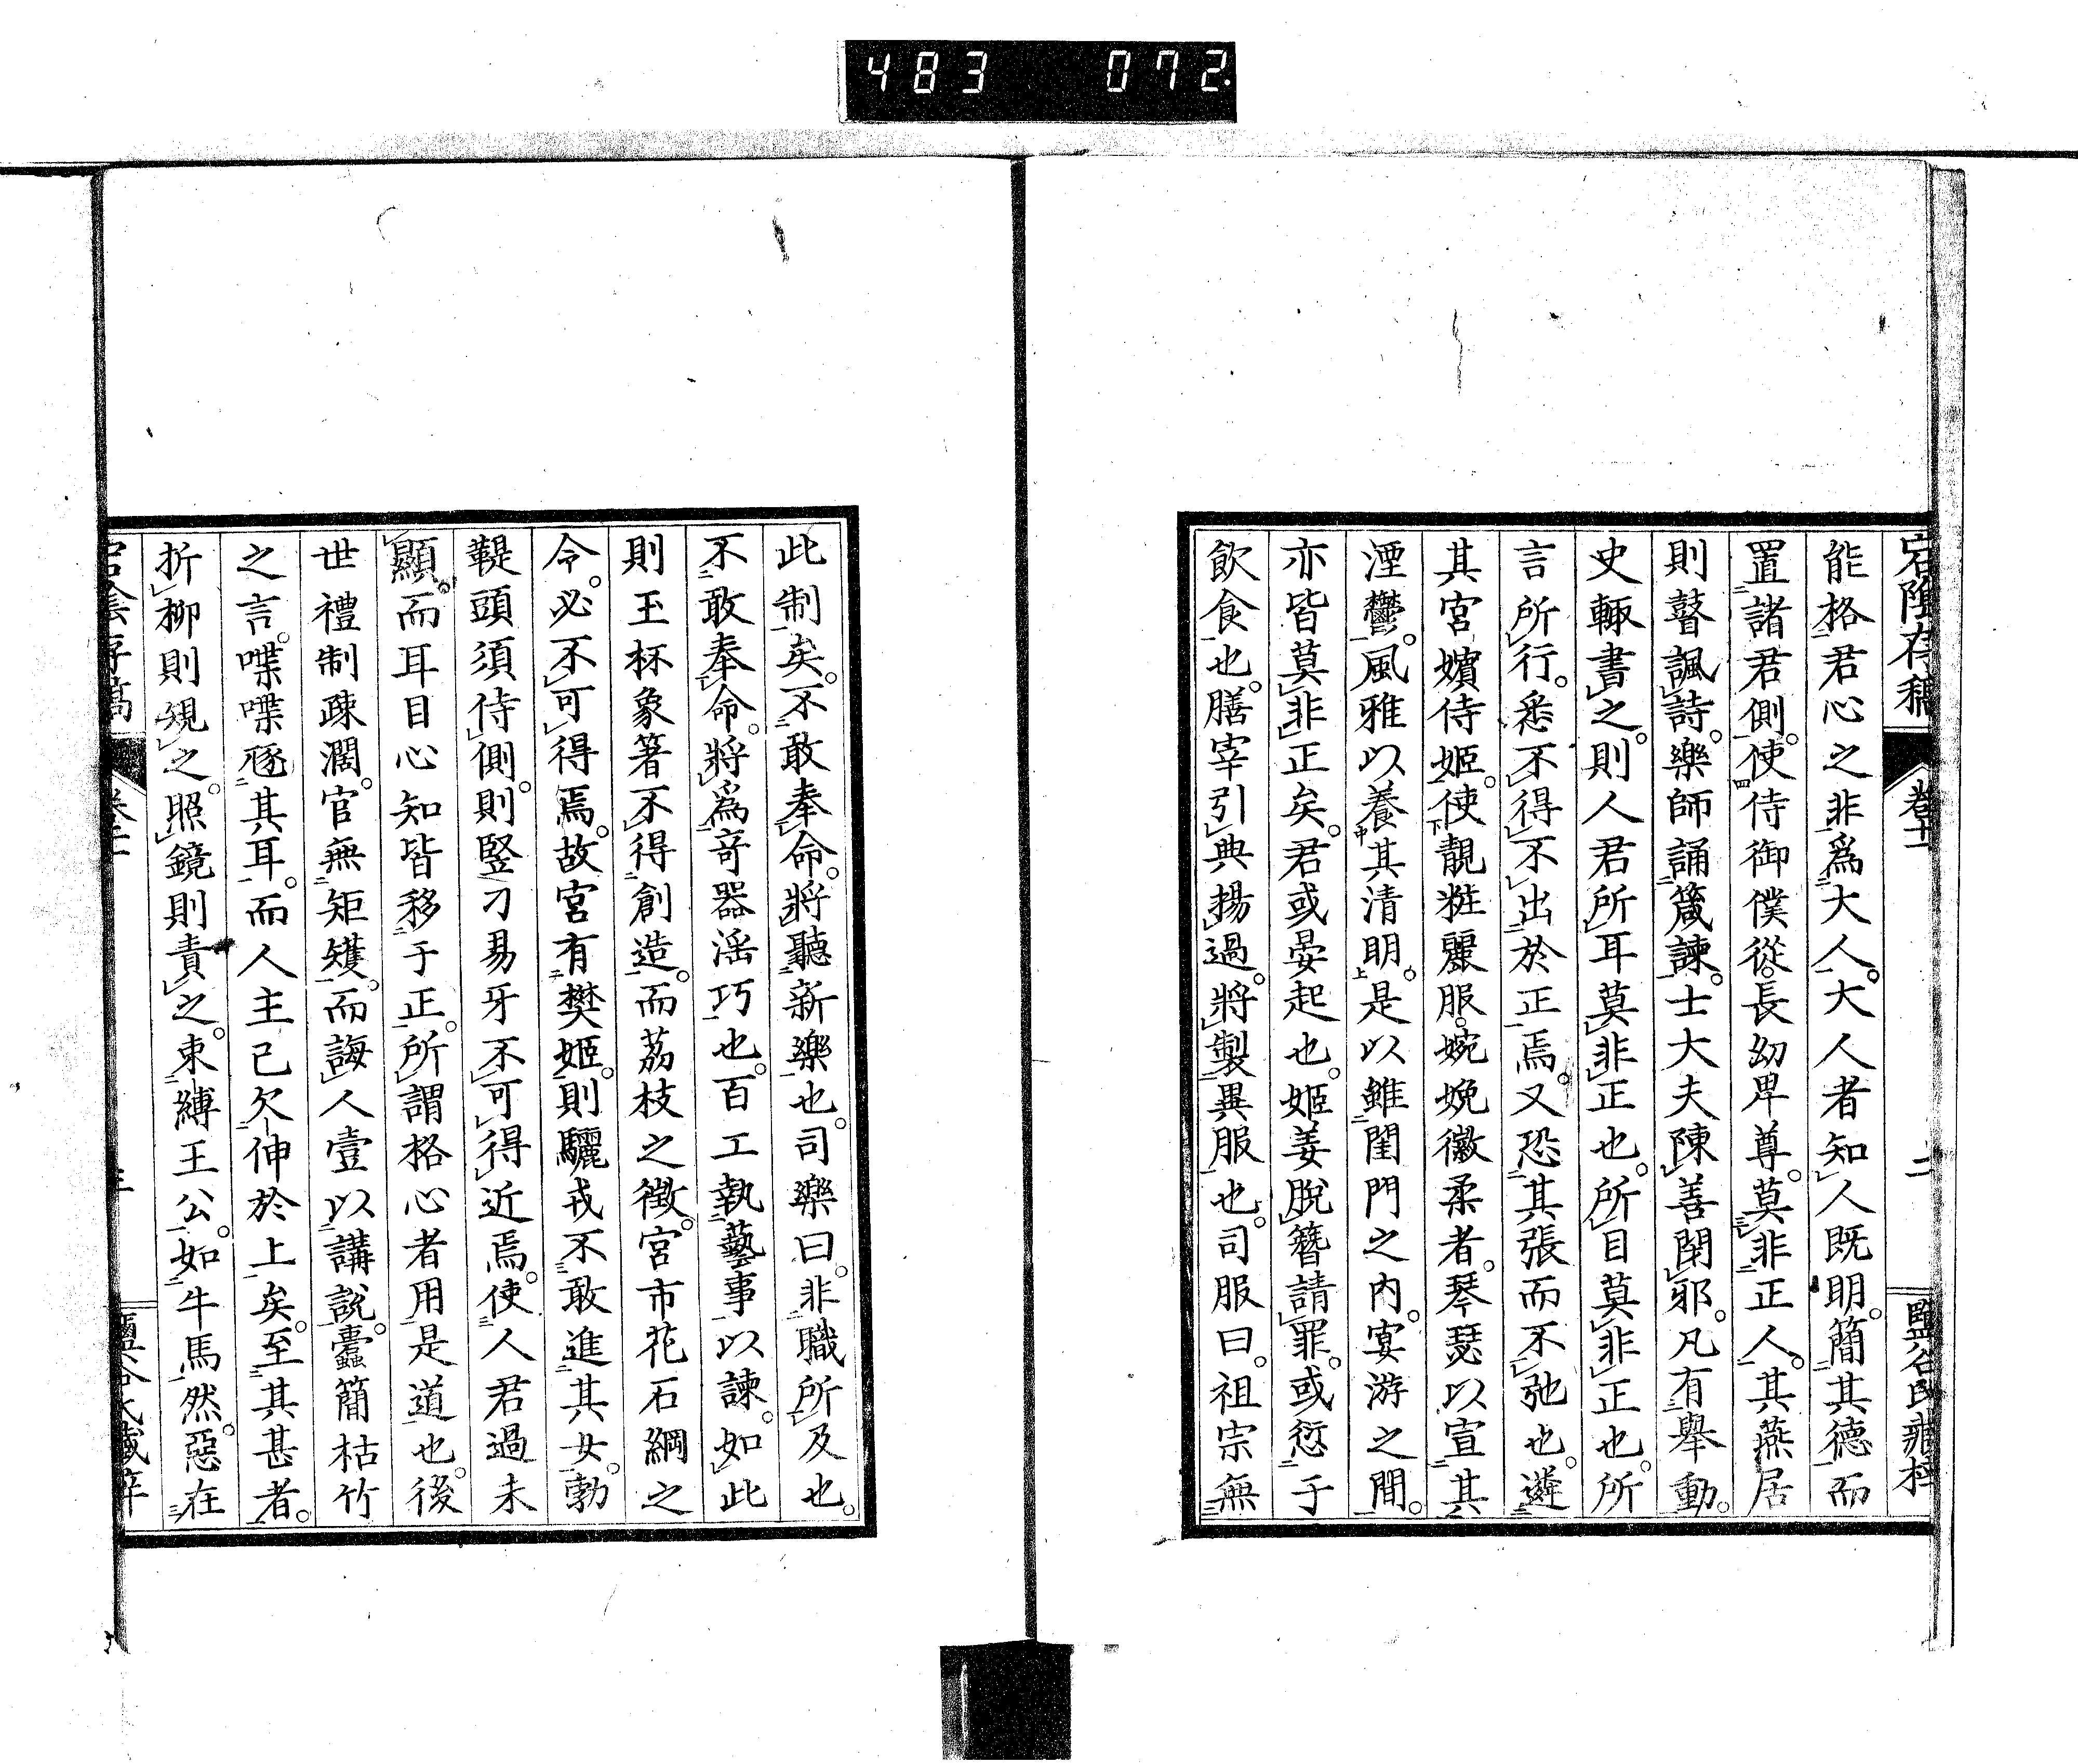 483 072
宕陰存稿 卷十一 二 鹽谷氏藏梓
能格君心之非爲大人。大人者知人既明。簡其德而
置諸君側。使侍御僕從。長幼卑尊。莫非正人。其燕居
則瞽諷詩。樂師誦箴諫。士大夫陳善閉邪。凡有舉動。
史輙書之。則人君所耳莫非正也。所目莫非正也。所
言所行。悉不得不出於正焉。又恐其張而不弛也。遴
其宮嬪侍姬。使靚粧麗服。婉娩徽柔者。琴瑟以宣其
湮鬱。風雅以養其清明。是以雖閨門之內。宴游之間。
亦皆莫非正矣。君或晏起也。姬姜脫簪請罪。或愆于
飲食也。膳宰引典揚過。將製異服也。司服曰。祖宗無
此制矣。不敢奉命。將聽新樂也。司樂曰。非職所及也。
不敢奉命。將爲奇器滛巧也。百工執藝事以諫。如此
則玉杯象箸不得創造。而荔枝之徵。宮市花石綱之
令。必不可得焉。故宮有樊姬。則驪戎不敢進其女。勃
鞮頭須侍側。則豎刁易牙不可得近焉。使人君過未
顯。而耳目心知皆移于正。所謂格心者用是道也。後
世禮制疎濶。官無矩矱。而誨人壹以講說。蠹簡枯竹
之言。喋喋聒其耳。而人主已欠伸於上矣。至其甚者。
折柳則規之。照鏡則責之。束縛王公。如牛馬然。惡在
宕陰存稿 卷十一 三 鹽谷氏藏梓